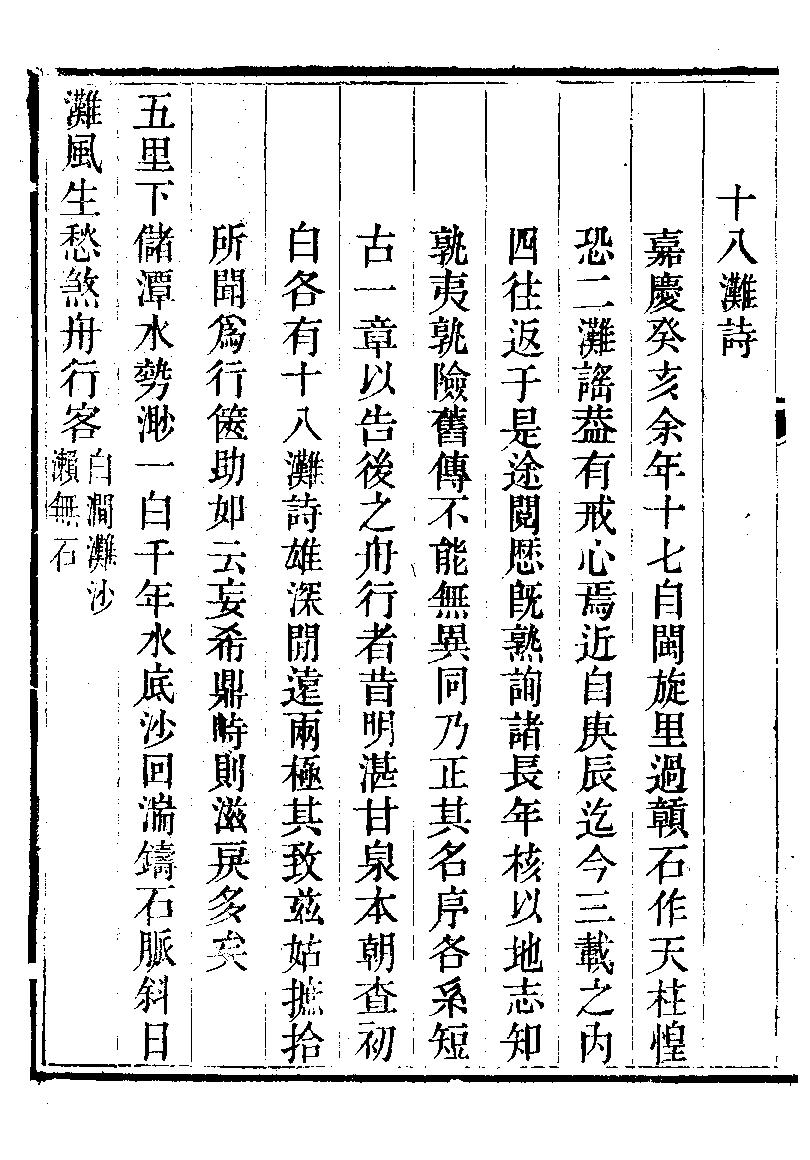 十八灘詩
嘉慶癸亥余年十七自閩旋里過贛石作天柱惶
恐二灘謠葢有戒心焉近自庚辰迄今三載之内
四往返于是途閲歷旣熟詢諸長年核以地志知
孰夷孰險舊傳不能無異同乃正其名序各系短
古一章以告後之舟行者昔明湛甘泉本朝查初
白各有十八灘詩雄深閒遠兩極其致茲姑摭拾
所聞爲行篋助如云妄希鼎峙則滋戾多矣
五里下儲潭水勢渺一白千年水底沙回湍鑄石脈斜日
灘風生愁煞舟行客
白澗灘沙
瀨無石